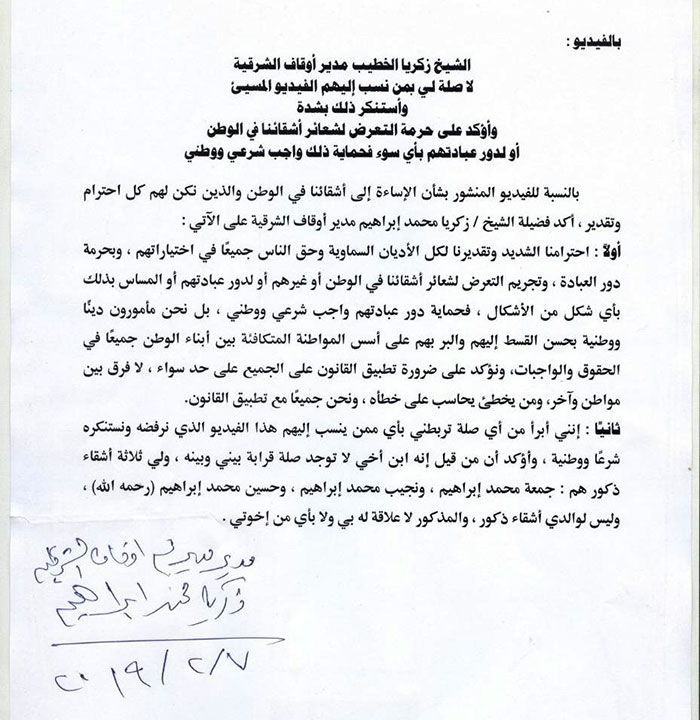 بالفيديو :
الشيخ زكريا الخطيب مدير أوقاف الشرقية
لا صلة لي بمن نسب إليهم الفيديو المسيئ
وأستنكر ذلك بشدة
وأؤكد على حرمة التعرض لشعائر أشقائنا في الوطن
أو لدور عبادتهم بأي سوء فحماية ذلك واجب شرعي ووطني
بالنسبة للفيديو المنشور بشأن الإساءة إلى أشقائنا في الوطن والذين نكن لهم كل احترام
وتقدير ، أكد فضيلة الشيخ / زكريا محمد إبراهيم مدير أوقاف الشرقية على الآتي :
أولاً : احترامنا الشديد وتقديرنا لكل الأديان السماوية وحق الناس جميعًا في اختياراتهم ، وبحرمة
دور العبادة ، وتجريم التعرض لشعائر أشقائنا في الوطن أو غيرهم أو لدور عبادتهم أو المساس بذلك
بأي شكل من الأشكال ، فحماية دور عبادتهم واجب شرعي ووطني ، بل نحن مأمورون دينًا
ووطنية بحسن القسط إليهم والبر بهم على أسس المواطنة المتكافئة بين أبناء الوطن جميعًا في
الحقوق والواجبات، ونؤكد على ضرورة تطبيق القانون على الجميع على حد سواء ، لا فرق بين
مواطن وآخر، ومن يخطئ يحاسب على خطأه ، ونحن جميعًا مع تطبيق القانون.
ثانيًا : إنني أبرأ من أي صلة تربطني بأي ممن ينسب إليهم هذا الفيديو الذي نرفضه ونستنكره
شرعًا ووطنية ، وأؤكد أن من قيل إنه ابن أخي لا توجد صلة قرابة بيني وبينه ، ولي ثلاثة أشقاء
ذكور هم : جمعة محمد إبراهيم ، ونجيب محمد إبراهيم ، وحسين محمد إبراهيم (رحمه الله) ،
وليس لوالدي أشقاء ذكور ، والمذكور لا علاقة له بي ولا بأي من إخوتي .
مدير مديرية اوقاف الشرقية
زكريا محمد ابراهيم
٢٠١٩/٢/٧